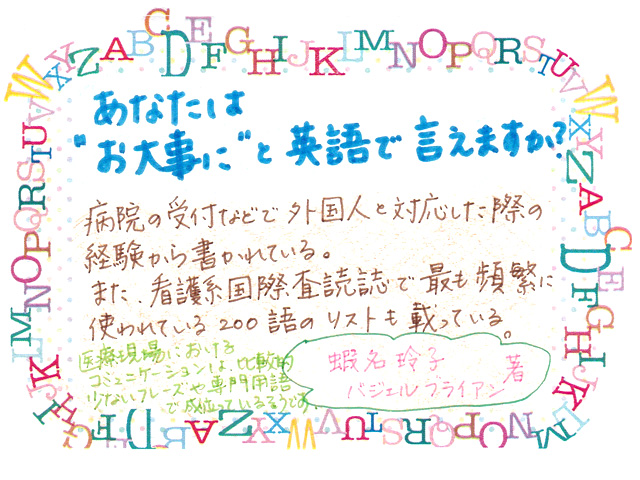 あなたは
"お大事に"と英語で言えますか?
病院の受付などで外国人と対応した際の
経験から書かれている。
また、看護系国際査読誌で最も頻繁に
使われている200語のリストも載っている。
医療現場における
コミュニケーションは、比較的
少ないフレーズや専門用語
で成立っているそうです。
蝦名玲子
バジェルブライアン 著